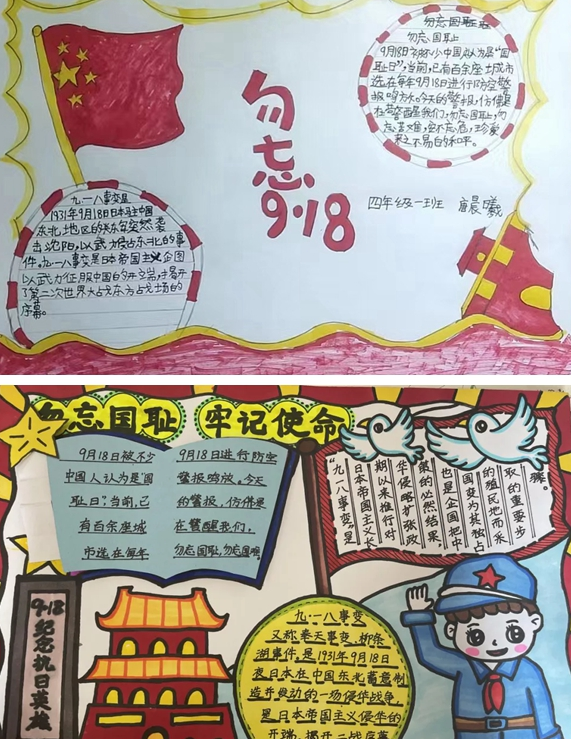 勿忘国耻
9月18日被不少中国人认为是“国
耻日”,当前,已有百余座城市
选在每年9月18日进行防空警
报鸣放。今天的警报,仿佛是
在警醒我们,勿忘国耻,勿
忘苦难,安不忘危,珍爱
来之不易的和平。
勿忘
9·18
四年级一班
晨曦
九一八事变是
1931年9月18日日本驻中国
东北地区的关东军突然袭
击沈阳,以武力侵占东北的事
件。九一八事变是日本帝国主义企图
以武力征服中国的开端,揭开
了第二次世界大战东方战场的
序幕。
勿忘国耻 牢记使命
9月18日被不少
中国人认为是“国
耻日”,当前,已
有百余座城
市选在每年
9月18日进行防空
警报鸣放。今天
的警报,仿佛是
在警醒我们,
勿忘国耻,勿忘国难。
骤。
取的重要步
的殖民地而采
国变为其独占
也是企图把中
策的必然结果,
华侵略扩张政
期以来推行对
日本帝国主义长
“九一八事变”是
9·18纪念抗日英雄
九·一八事变
又称奉天事变、柳条
湖事件,是1931年9月18日
夜日本在中国东北蓄意制
造并发动的一场侵华战争,
是日本帝国主义侵华的
开端,揭开二战序幕